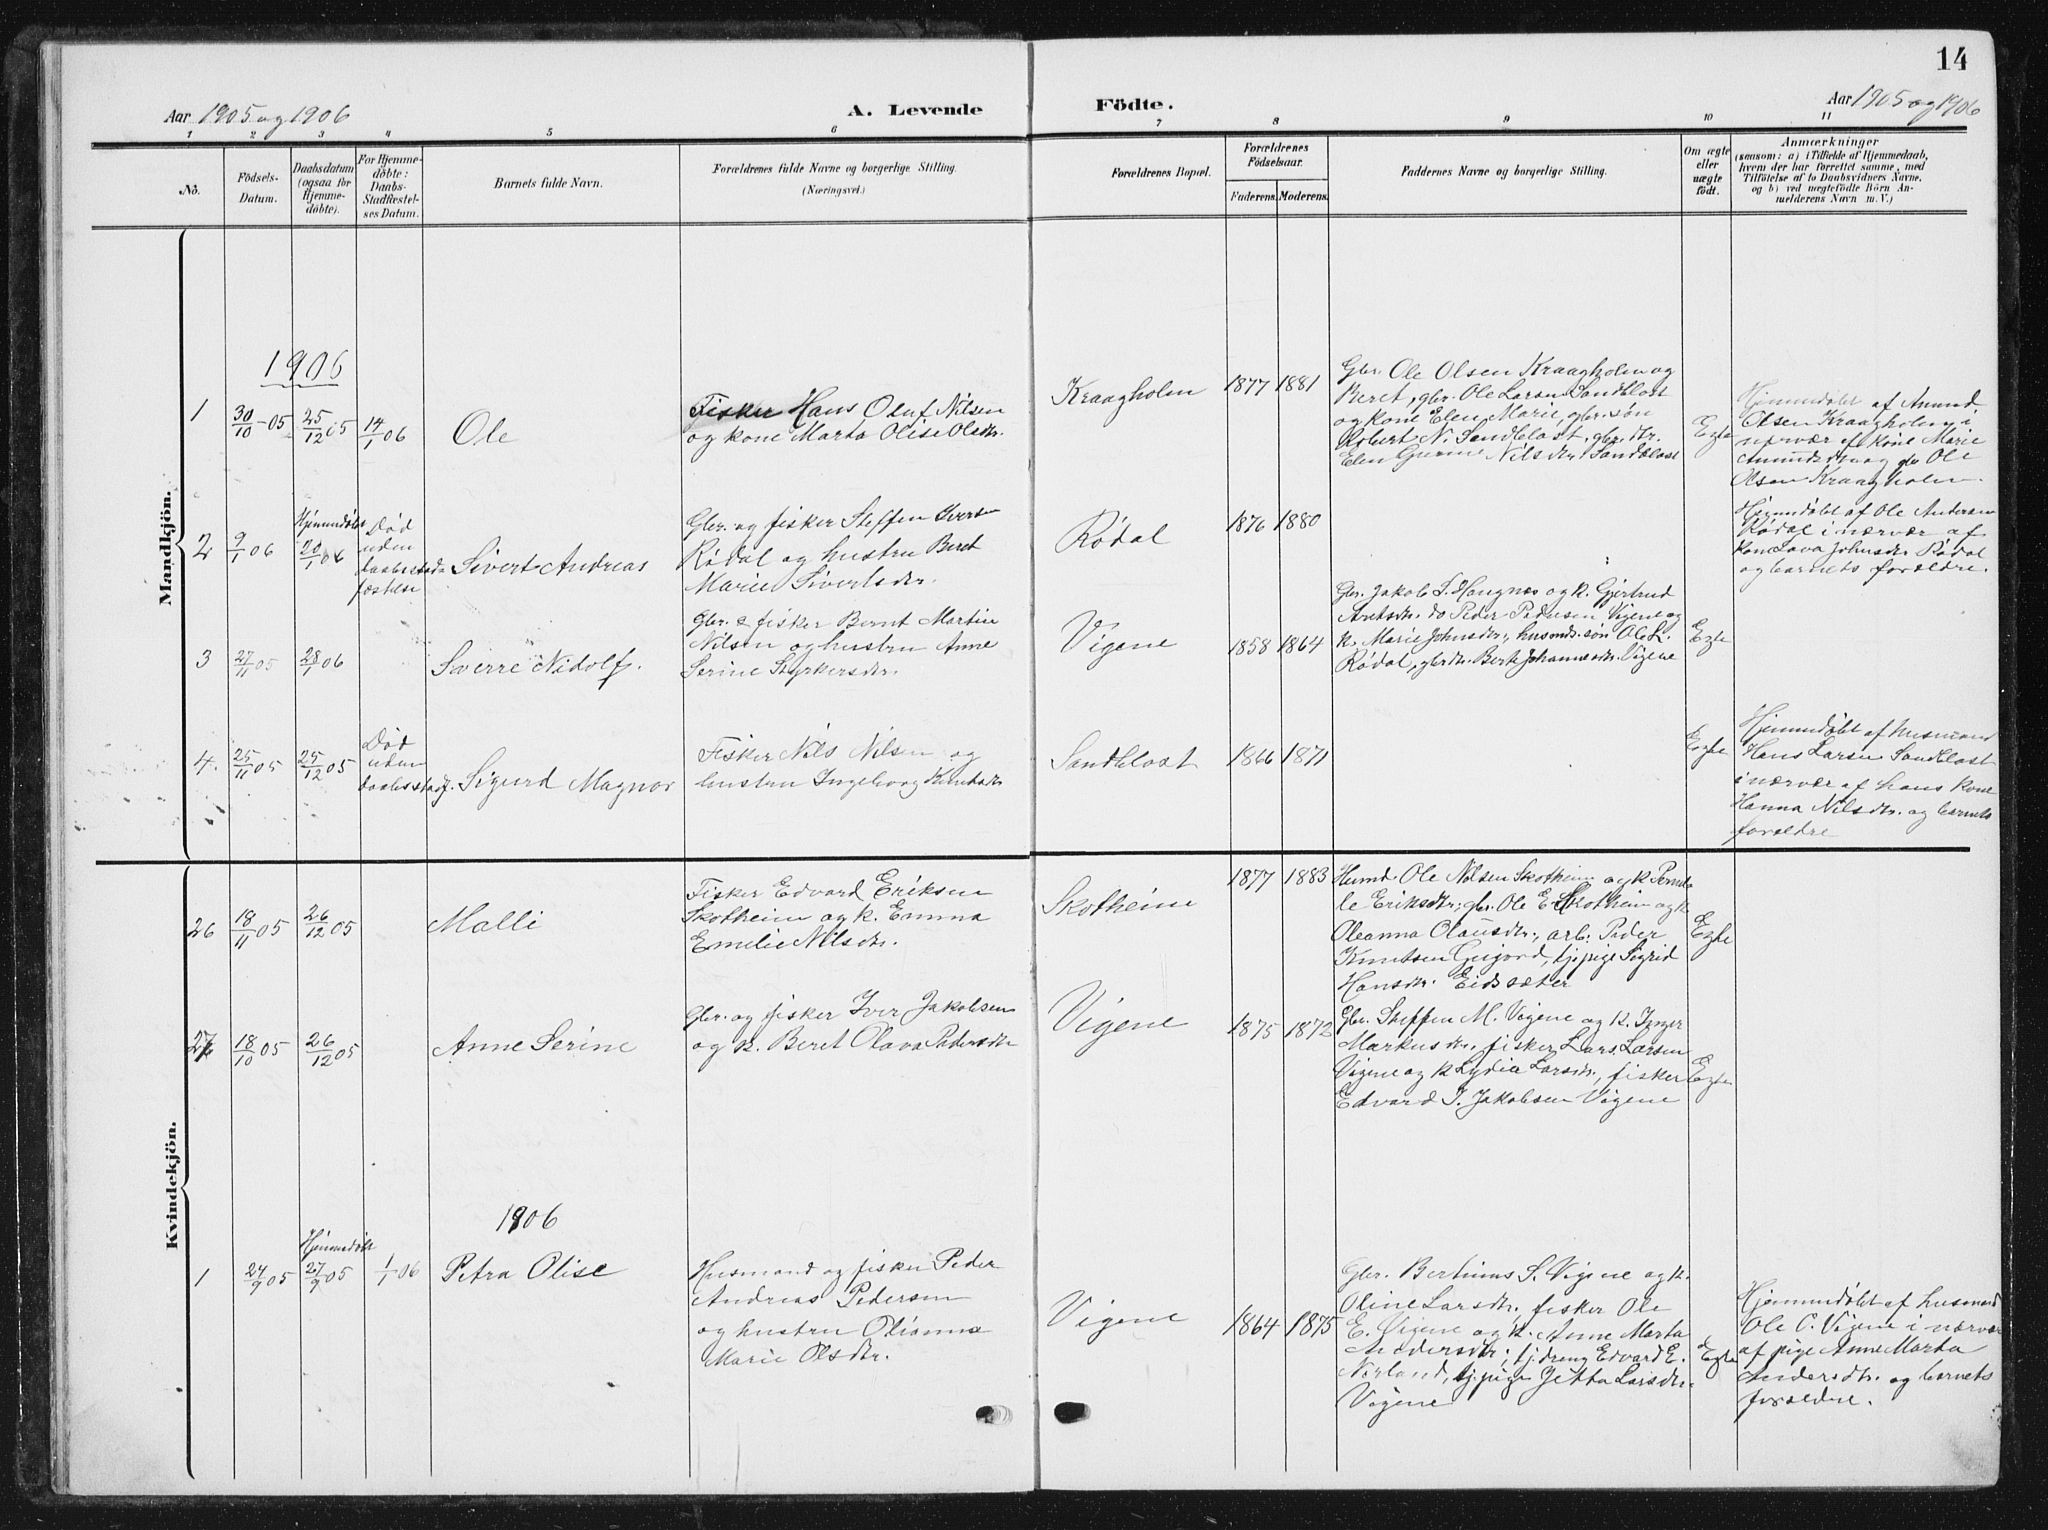 14
Aar 1905 og 1906
A. Levende
Födte.
Aar 1905 og 1906
1 2 3 4 5 6 7 8 9 10 11
No.
Födsels-
Datum.
Daabsdatum
(ogsaa for
Hjemme-
döbte).
For Hjemme-
döbte:
Daabs-
Stadfæstel-
ses Datum.
Barnets fulde Navn.
Forældrenes fulde Navne og borgerlige Stilling.
(Næringsvei.)
Forældrenes Bopæl.
Forældrenes
Födselsaar.
Faderens. Moderens.
Faddernes Navne og borgerlige Stilling.
Om ægte
eller
uægte
födt.
Anmærkninger
(saasom: a) i Tilfælde af Hjemmedaab,
hvem der har forrettet samme, med
Tilföielse af to Daabsvidners Navne,
og b) ved uægtefödte Börn An-
melderens Navn m. V.)
Mandkjön.
1906
1
30/10-05
25/12 05
14/1 06
Ole
Fisker Hans Oluf Nilsen
og kone Marta Olise Olsdtr.
Kraagholm
1877 1881
Gbr. Ole Olsen Kraagholm og
Beret, gbr. Ole Larsen Sandblost
og kone Elen Marie, gbr. søn
Robert N. Sandblost, gbr. dtr.
Elen Gurine Nilsdtr. Sandblost
Egte
Hjemmedøbt af Amund
Olsen Kraagholm i
nærvær af kone Marie
Amundsdtr og gbr Ole
Olsen Kraagholm.
2
9/1 06
Hjemmedøbt
20/1 06
Død
uden
daabsstad-
fæstelse
Sivert Andreas
Gbr. og fisker Steffen Iversen
Rødal og hustru Beret
Marie Sivertsdtr.
Rødal
1876 1880
Hjemmdøbt af Ole Andersen
Rødal i nærvær af
kone Lava Johnsdtr Rødal
og barnets forældre.
3
27/11 05
28/1 06
Sverre Nidolf.
Gbr. & fisker Bernt Martin
Nilsen og hustru Anne
Serine Styrkersdtr.
Vigene
1858 1864
Gbr. Jakob S. Haugnæs og k. Gjertrud
Aretsdtr. do Peder Pedersen Vigene og
k. Marie Johnsdtr., husmds. søn Ole L.
Rødal, gbrdtr. Berte Johannesdtr. Vigene
Egte
4.
25/11 05
25/12 05
Død
uden
daabsstadf.
Sigurd Magnor
Fisker Nils Nilsen og
hustru Ingeborg Knutsdtr
Sandblost
1866 1871
Egte
Hjemmdøbt af husmand
Hans Larsen Sandblost
i nærvær af hans kone
Hanna Nilsdtr. og barnets
forældre
Kvindekjön.
26
18/11 05
26/12 05
Malli
Fisker Edvard Eriksen
Skotheim og k. Emma
Emelie Nilsdtr.
Skotheim
1877 1883
Husmd. Ole Nilsen Skotheim og k. Pernil-
le Eriksdtr; gbr. Ole E. Skotheim og k.
Oleanna Olausdtr., arb. Peder
Knutsen Gusjord, tj. pige Sigrid
Hansdtr. Eidssæter
Egte
27
18/10 05
26/12 05
Anne Serine
Gbr. og fisker Iver Jakobsen
og k. Beret Olava Pedersdtr
Vigene
1875 1872
Gbr. Steffen M. Vigene og k. Inger
Markusdtr., fisker Lars Larsen
Vigene og k Lydia Larsdtr., fisker
Edvard I. Jakobsen Vigene
Egte
1906
1
24/9 05
Hjemmedøbt
27/9 05
1/1 06
Petra Olise
Husmand og fisker Peder
Andreas Pedersen
og hustru Olianna
Marie Olsdtr.
Vigene
1864 1875
Gbr. Bertinus S. Vigene og k.
Oline Larsdtr. fisker Ole
E. Vigene og k. Anne Marta
Andersdtr; tj. dreng Edvard E.
Nerland, tj. pige Jetta Larsdtr.
Vigene
Egte
Hjemmedøbt af husmand
Ole O. Vigene i nærvær
af pige Anne Marta
Andersdtr. og barnets
forældre.